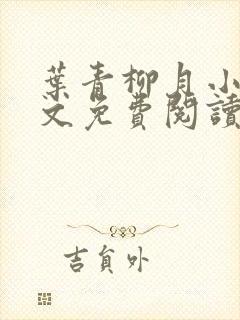 葉青柳月小
文免費閱讀
吉貟外